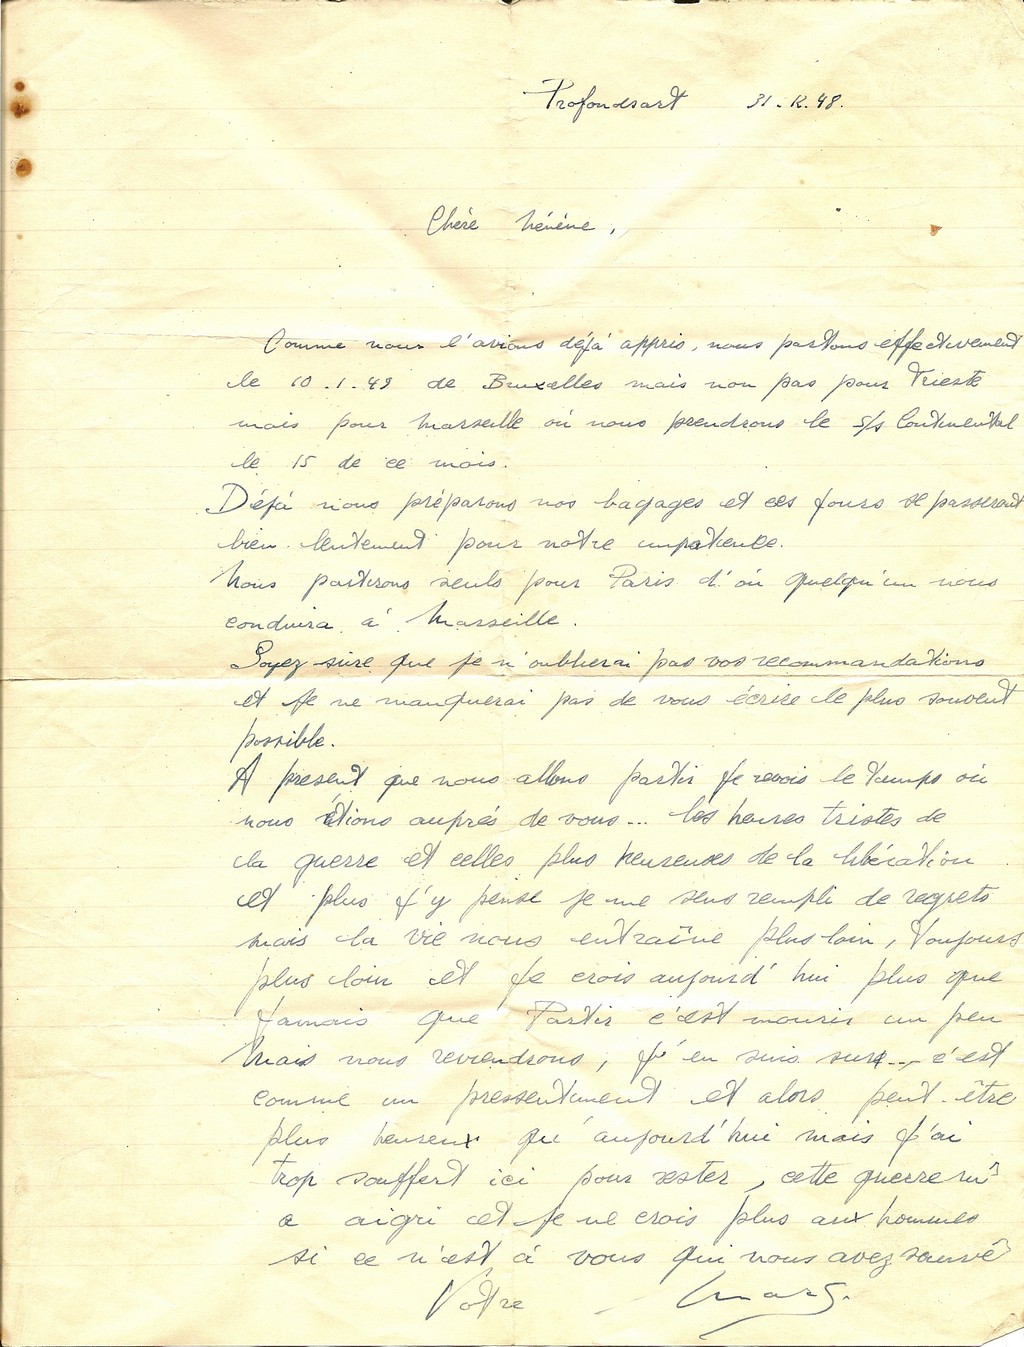 Profondsart 31.12.48.
Chère Hélène,
Comme nous l'avions déjà appris, nous partons effectivement
le 10.1.49 de Bruxelles mais non pas pour Trieste
mais pour Marseille où nous prendrons le s/s Continental
le 15 de ce mois.
Déjà nous préparons nos bagages et ces jours se passeront
bien lentement pour notre impatience.
Nous partirons seuls pour Paris d'où quelqu'un nous
conduira à Marseille.
Soyez sûre que je n'oublierai pas vos recommandations
et je ne manquerai pas de vous écrire le plus souvent
possible.
A present que nous allons partir je revois le temps où
nous étions auprés de vous... les heures tristes de
la guerre et celles plus heureuses de la libération
et plus j'y pense je me sens rempli de regrets
mais la vie nous entraîne plus loin, toujours
plus loin et je crois aujourd'hui plus que
jamais que Partir c'est mourir un peu
Mais nous reviendrons, j'en suis sur... c'est
comme un pressentiment et alors peut-être
plus heureux qu'aujourd'hui mais j'ai
trop souffert ici pour rester, cette guerre m'
a aigri et je ne crois plus aux hommes
si ce n'est à vous qui nous avez sauvé
Votre